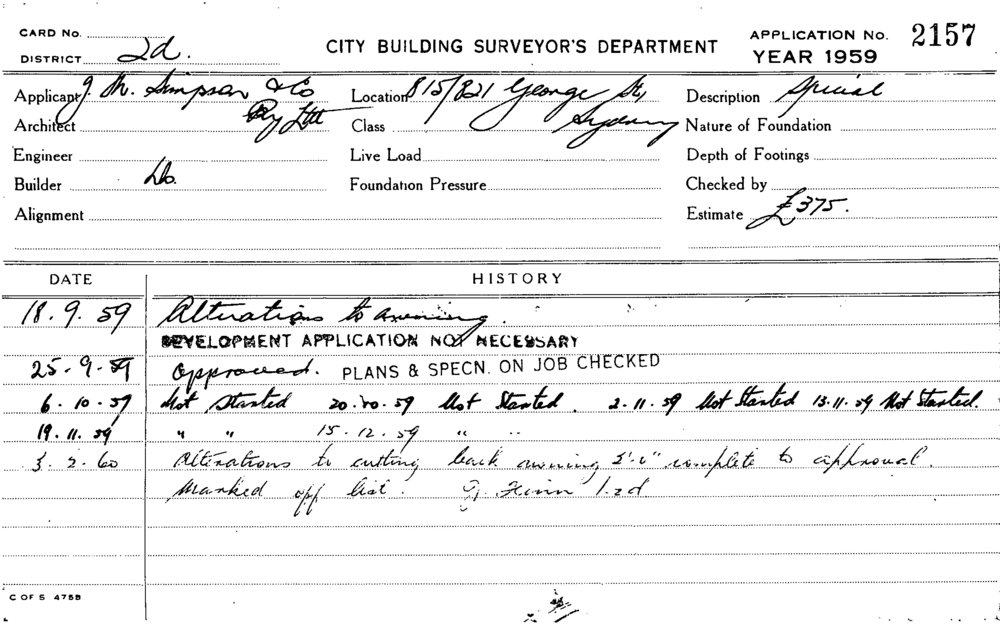 CARD No.
DISTRICT 2d.
CITY BUILDING SURVEYOR'S DEPARTMENT
APPLICATION No. 2157
YEAR 1959
Applicant J. M. Simpson & Co Pty Ltd
Location 815/821 George St, Sydney
Description Special
Architect
Class
Nature of Foundation
Engineer
Live Load
Depth of Footings
Builder Do.
Foundation Pressure
Checked by
Alignment
Estimate £375.
DATE HISTORY
18.9.59 Alterations to awning.
DEVELOPMENT APPLICATION NOT NECESSARY
25-9-59 Approved. PLANS & SPECN. ON JOB CHECKED
6.10.59 Not Started 20.10.59 Not Started. 2.11.59 Not Started 13.11.59 Not Started.
19.11.59 " " 15.12.59 " "
3.2.60 Alterations to cutting back awning complete to approval.
Marked off list. 2d
C OF S 475B